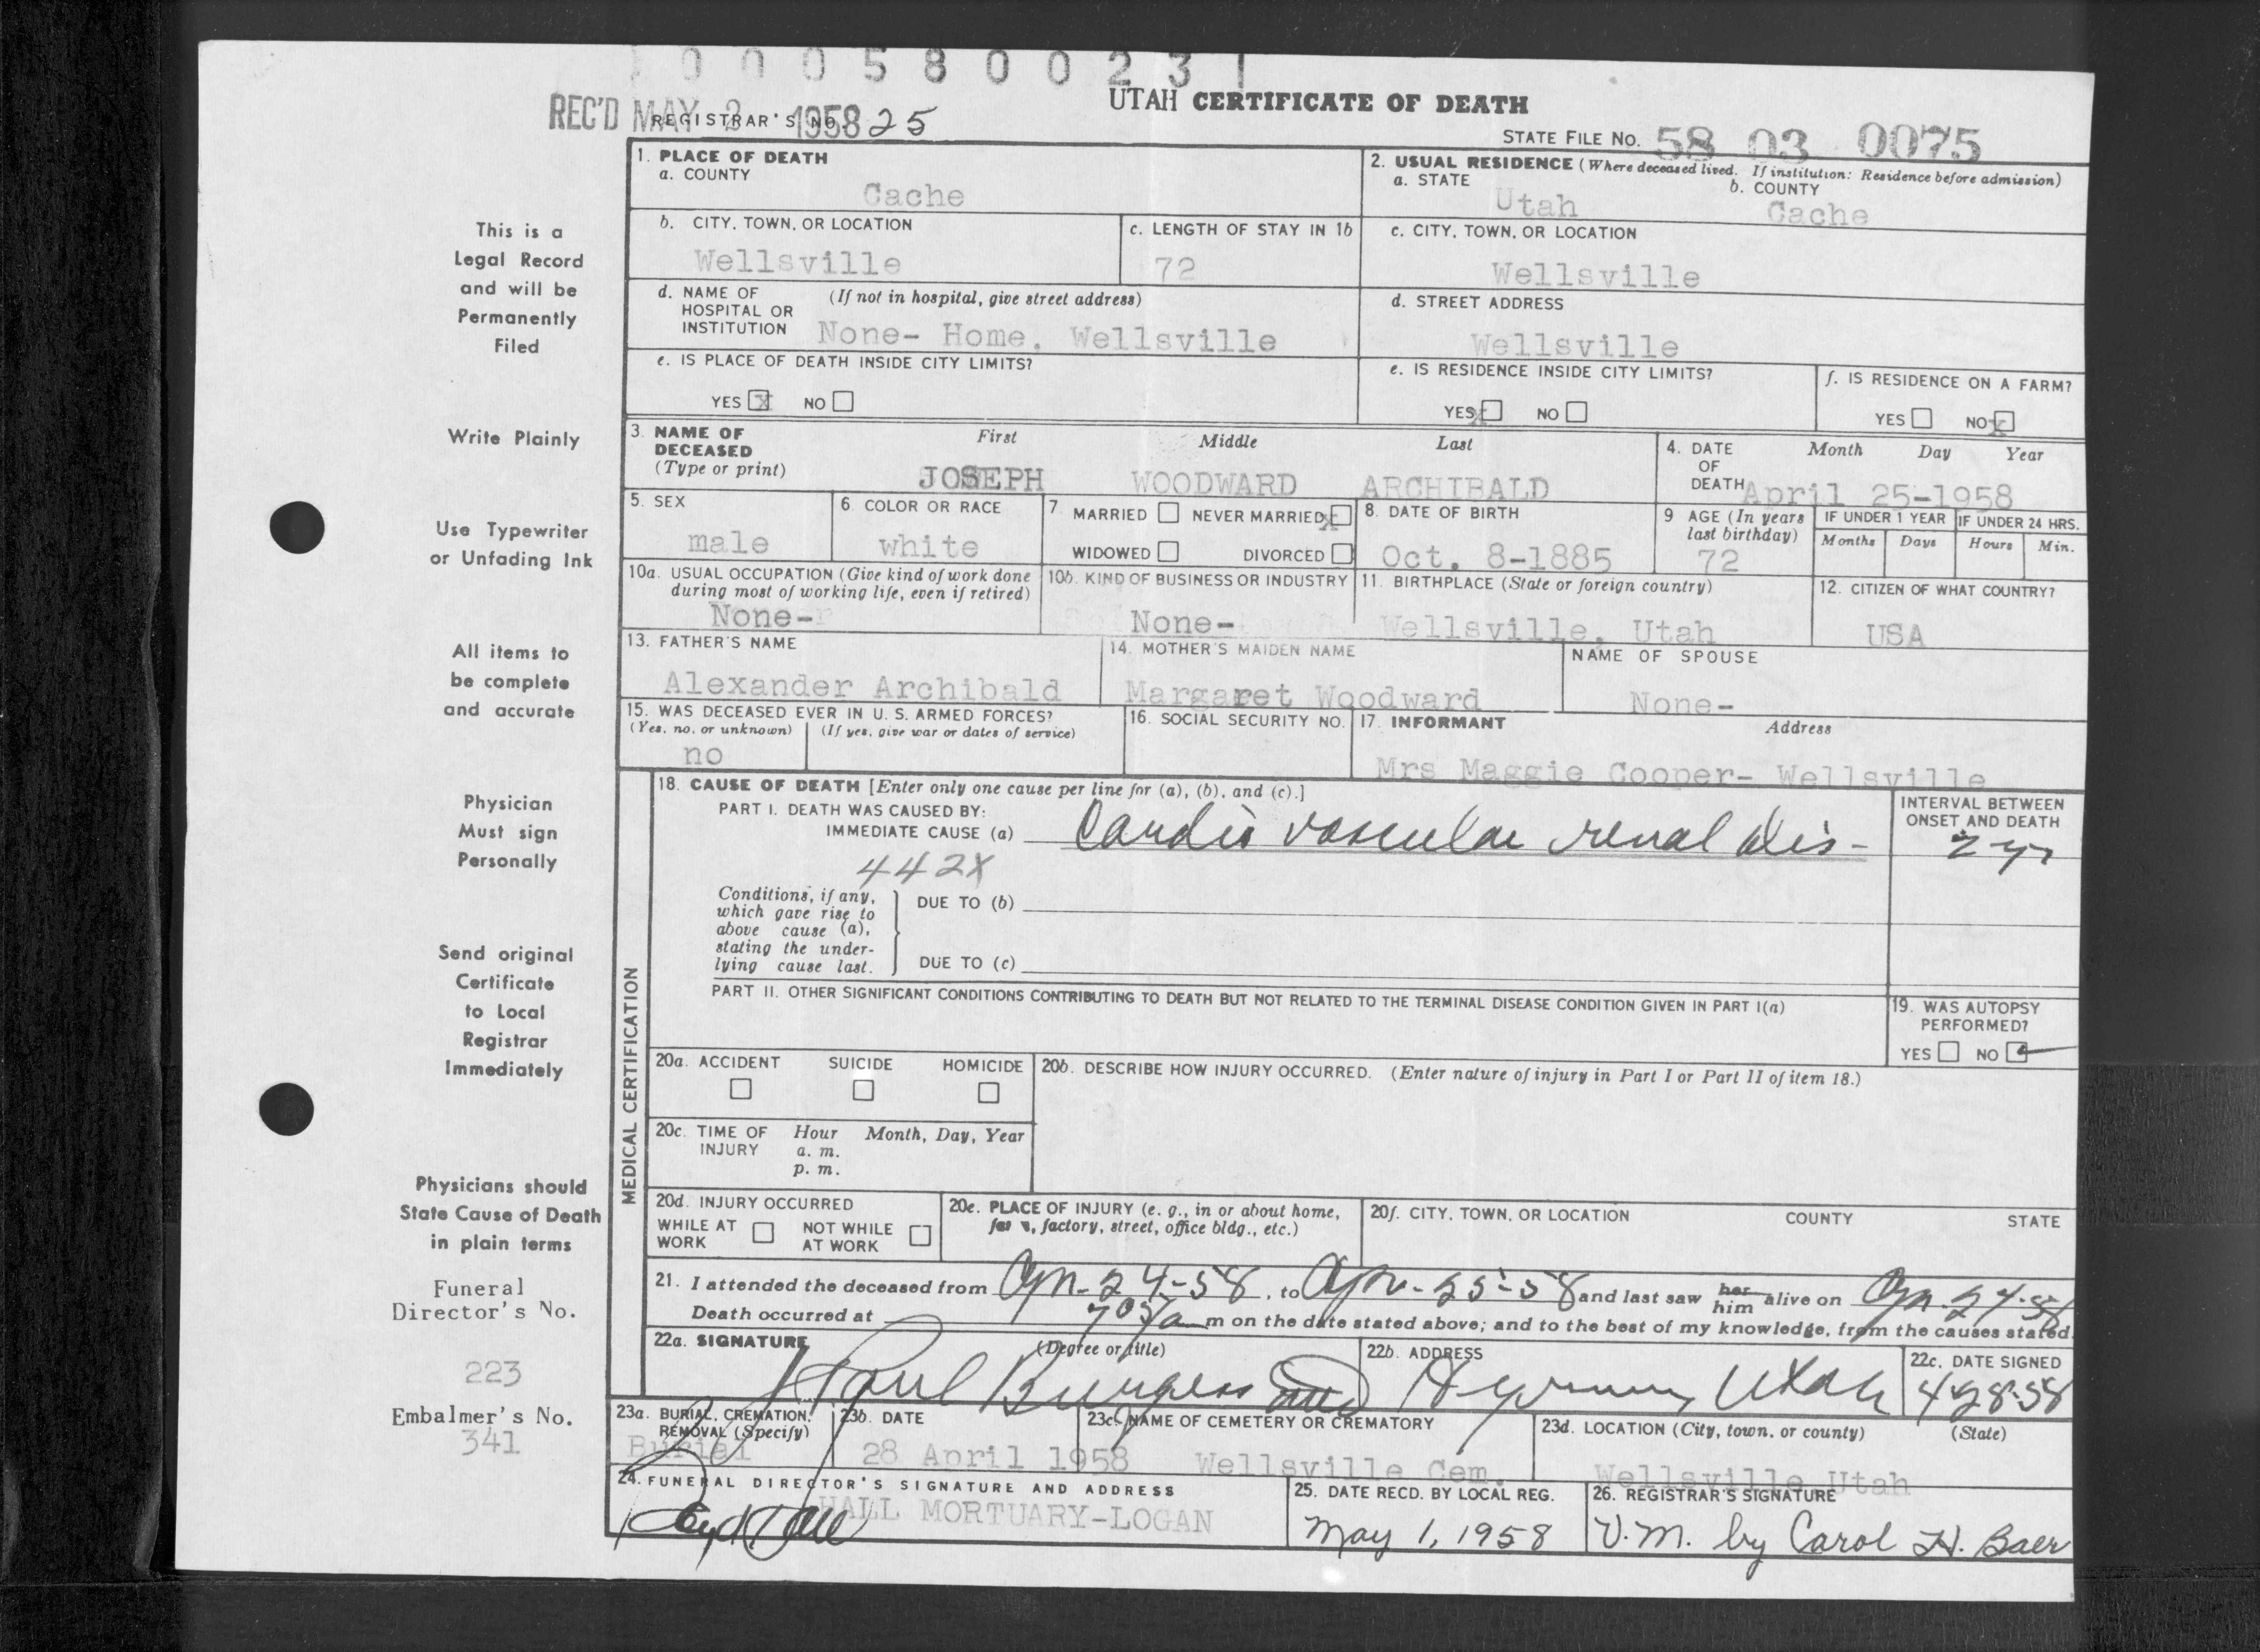 0 0 0 5 8 0 0 2 3 1
UTAH CERTIFICATE OF DEATH
REC'D MAY 2 1958
REGISTRAR'S NO. 25
STATE FILE NO. 58 03 0075
This is a
Legal Record
and will be
Permanently
Filed
Write Plainly
Use Typewriter
or Unfading Ink
All items to
be complete
and accurate
Physician
Must sign
Personally
Send original
Certificate
to Local
Registrar
Immediately
Physicians should
State Cause of Death
in plain terms
Funeral
Director's No.
223
Embalmer's No.
341
1. PLACE OF DEATH
a. COUNTY
Cache
2. USUAL RESIDENCE (Where deceased lived. If institution: Residence before admission)
a. STATE b. COUNTY
Utah Cache
b. CITY, TOWN, OR LOCATION
Wellsville
c. LENGTH OF STAY IN 1b
72
c. CITY, TOWN, OR LOCATION
Wellsville
d. NAME OF (If not in hospital, give street address)
HOSPITAL OR
INSTITUTION None- Home. Wellsville
d. STREET ADDRESS
Wellsville
e. IS PLACE OF DEATH INSIDE CITY LIMITS?
YES x NO
e. IS RESIDENCE INSIDE CITY LIMITS?
YES x NO
f. IS RESIDENCE ON A FARM?
YES NO x
3. NAME OF First Middle Last
DECEASED
(Type or print) JOSEPH WOODWARD ARCHIBALD
4. DATE Month Day Year
OF
DEATH April 25-1958
5. SEX
male
6. COLOR OR RACE
white
7. MARRIED NEVER MARRIED x
WIDOWED DIVORCED
8. DATE OF BIRTH
Oct. 8-1885
9 AGE (In years
last birthday)
72
IF UNDER 1 YEAR IF UNDER 24 HRS.
Months Days Hours Min.
10a. USUAL OCCUPATION (Give kind of work done
during most of working life, even if retired)
None-
10b. KIND OF BUSINESS OR INDUSTRY
None-
11. BIRTHPLACE (State or foreign country)
Wellsville, Utah
12. CITIZEN OF WHAT COUNTRY?
USA
13. FATHER'S NAME
Alexander Archibald
14. MOTHER'S MAIDEN NAME
Margaret Woodward
NAME OF SPOUSE
None-
15. WAS DECEASED EVER IN U. S. ARMED FORCES?
(Yes, no, or unknown) (If yes, give war or dates of service)
no
16. SOCIAL SECURITY NO.
17. INFORMANT Address
Mrs Maggie Cooper- Wellsville
MEDICAL CERTIFICATION
18. CAUSE OF DEATH [Enter only one cause per line for (a), (b), and (c).]
PART I. DEATH WAS CAUSED BY:
IMMEDIATE CAUSE (a) Cardio vascular renal dis-
442X
INTERVAL BETWEEN
ONSET AND DEATH
2 yr
Conditions, if any,
which gave rise to
above cause (a),
stating the under-
lying cause last.
DUE TO (b)
DUE TO (c)
PART II. OTHER SIGNIFICANT CONDITIONS CONTRIBUTING TO DEATH BUT NOT RELATED TO THE TERMINAL DISEASE CONDITION GIVEN IN PART I(a)
19. WAS AUTOPSY
PERFORMED?
YES NO
20a. ACCIDENT SUICIDE HOMICIDE
20b. DESCRIBE HOW INJURY OCCURRED. (Enter nature of injury in Part I or Part II of item 18.)
20c. TIME OF Hour Month, Day, Year
INJURY a. m.
p. m.
20d. INJURY OCCURRED
WHILE AT NOT WHILE
WORK AT WORK
20e. PLACE OF INJURY (e. g., in or about home,
farm, factory, street, office bldg., etc.)
20f. CITY, TOWN, OR LOCATION COUNTY STATE
21. I attended the deceased from Apr-24-58, to Apr-25-58 and last saw her him alive on Apr. 24-58
Death occurred at 7 05/a m on the date stated above; and to the best of my knowledge, from the causes stated.
22a. SIGNATURE (Degree or title)
Paul Burgess
22b. ADDRESS
Hyrum, Utah
22c. DATE SIGNED
4-28-58
23a. BURIAL, CREMATION,
REMOVAL (Specify)
Burial
23b. DATE
28 April 1958
23c. NAME OF CEMETERY OR CREMATORY
Wellsville Cem.
23d. LOCATION (City, town, or county) (State)
Wellsville Utah
24. FUNERAL DIRECTOR'S SIGNATURE AND ADDRESS
HALL MORTUARY-LOGAN
25. DATE RECD. BY LOCAL REG.
May 1, 1958
26. REGISTRAR'S SIGNATURE
V. M. by Carol H. Baer